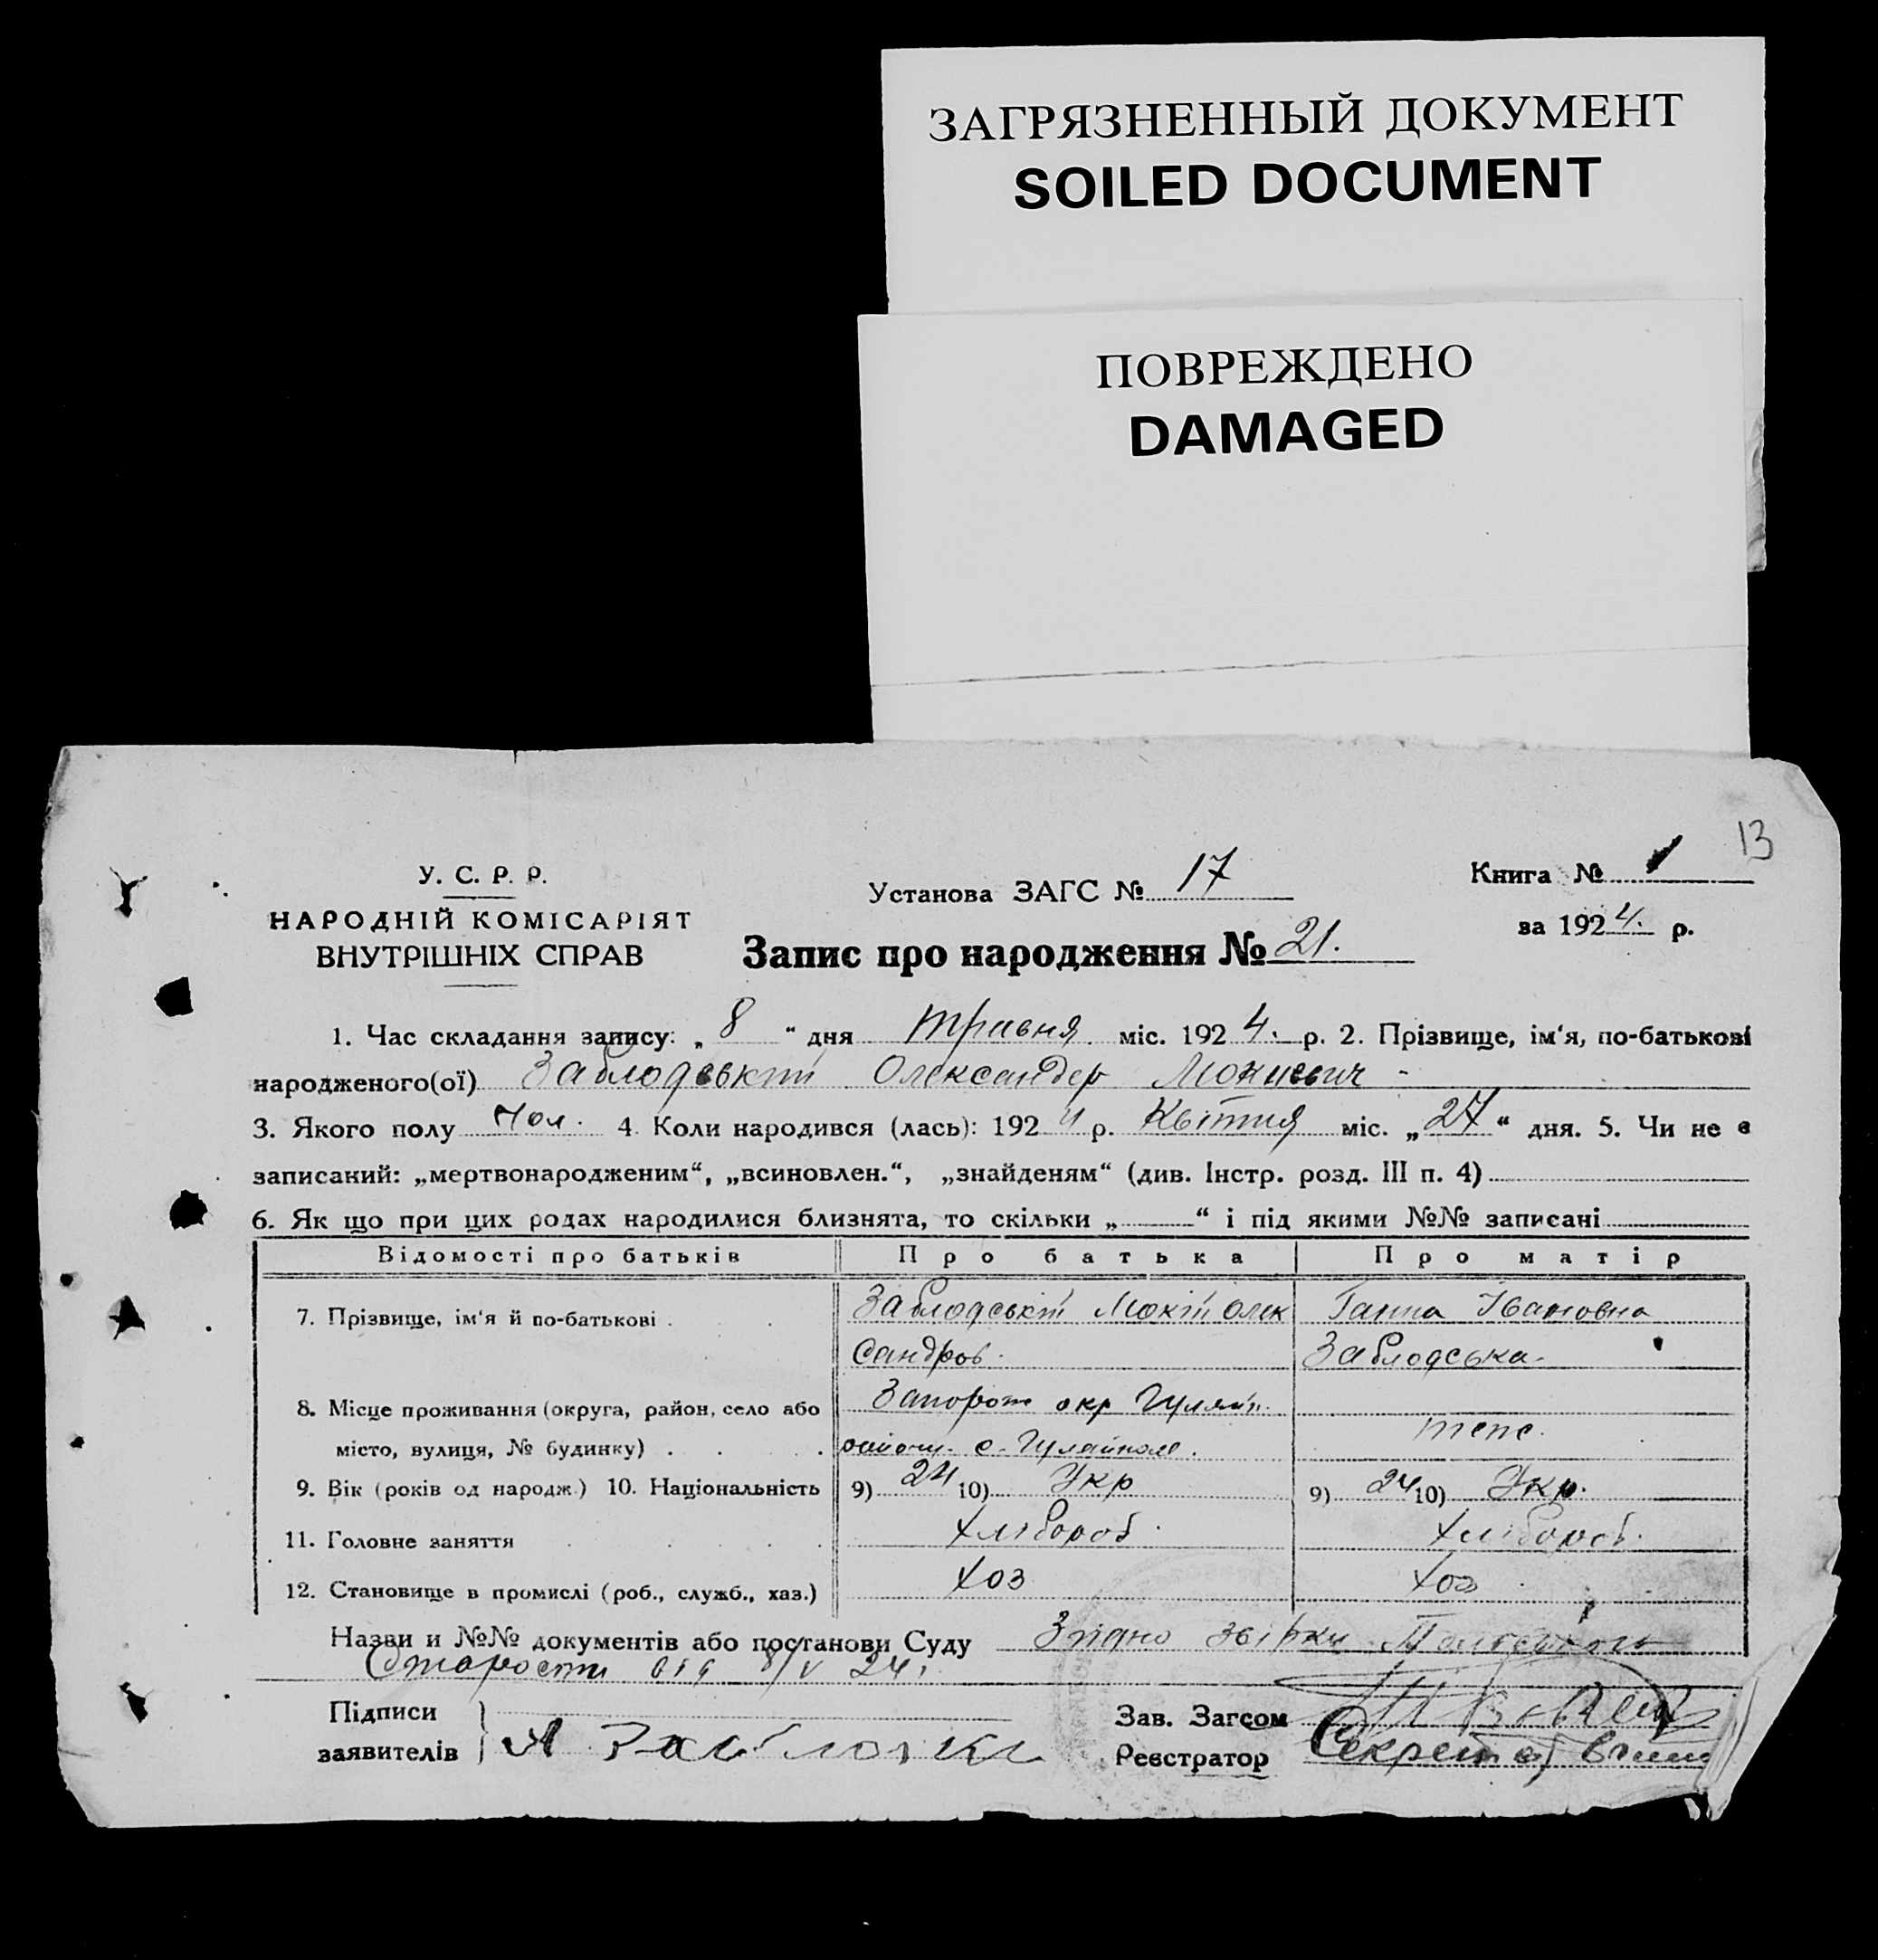 ЗАГРЯЗНЕННЫЙ ДОКУМЕНТ
SOILED DOCUMENT
ПОВРЕЖДЕНО
DAMAGED
13
У. С. Р. Р.
НАРОДНІЙ КОМІСАРІЯТ
ВНУТРІШНІХ СПРАВ
Установа ЗАГС № 17
Запис про народження № 21.
Книга № 1
за 1924. р.
1. Час складання запису: „ 8 “ дня травня міс. 1924. р. 2. Прізвище, ім'я, по-батькові
народженого(ої) Заблодський Олександер Мокиевич -
3. Якого полу Чол. 4. Коли народився (лась): 1924 р. Квітня міс. „27“ дня. 5. Чи не є
записаний: „мертвонародженим“, „всиновлен.“, „знайденям“ (див. Інстр. розд. III п. 4)
6. Як що при цих родах народилися близнята, то скільки „ “ і під якими №№ записані
Відомості про батьків Про батька Про матір
7. Прізвище, ім'я й по-батькові . Заблодський Мокій Олек Ганна Івановна
сандров. Заблодська.
8. Місце проживання (округа, район, село або Запорож окр Гуляйп.
місто, вулиця, № будинку) . . . с. Гуляйполе. теж.
9. Вік (років од народж.) 10. Національність 9) 24 10) Укр 9) 24 10) Укр.
11. Головне заняття Хлібороб. Хлібороб.
12. Становище в промислі (роб., служб., хаз.) Хоз Хоз
Назви и №№ документів або постанови Суду Згідно
від 8/V 24.
Підписи
заявителів
Зав. Загсом
Реєстратор Секретар